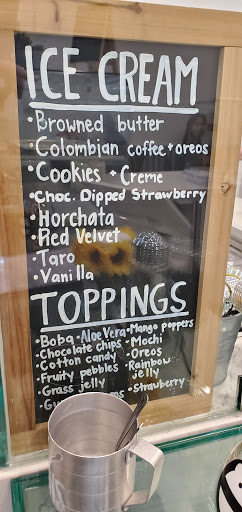 ICE CREAM
• Browned butter
• Colombian coffee + oreos
• Cookies + Creme
• Choc. Dipped Strawberry
• Horchata
• Red Velvet
• Taro
• Vanilla
TOPPINGS
• Boba • Aloe Vera • Mango poppers
• Chocolate chips • Mochi
• Cotton candy • Oreos
• Fruity pebbles • Rainbow Jelly
• Grass jelly • Strawberry